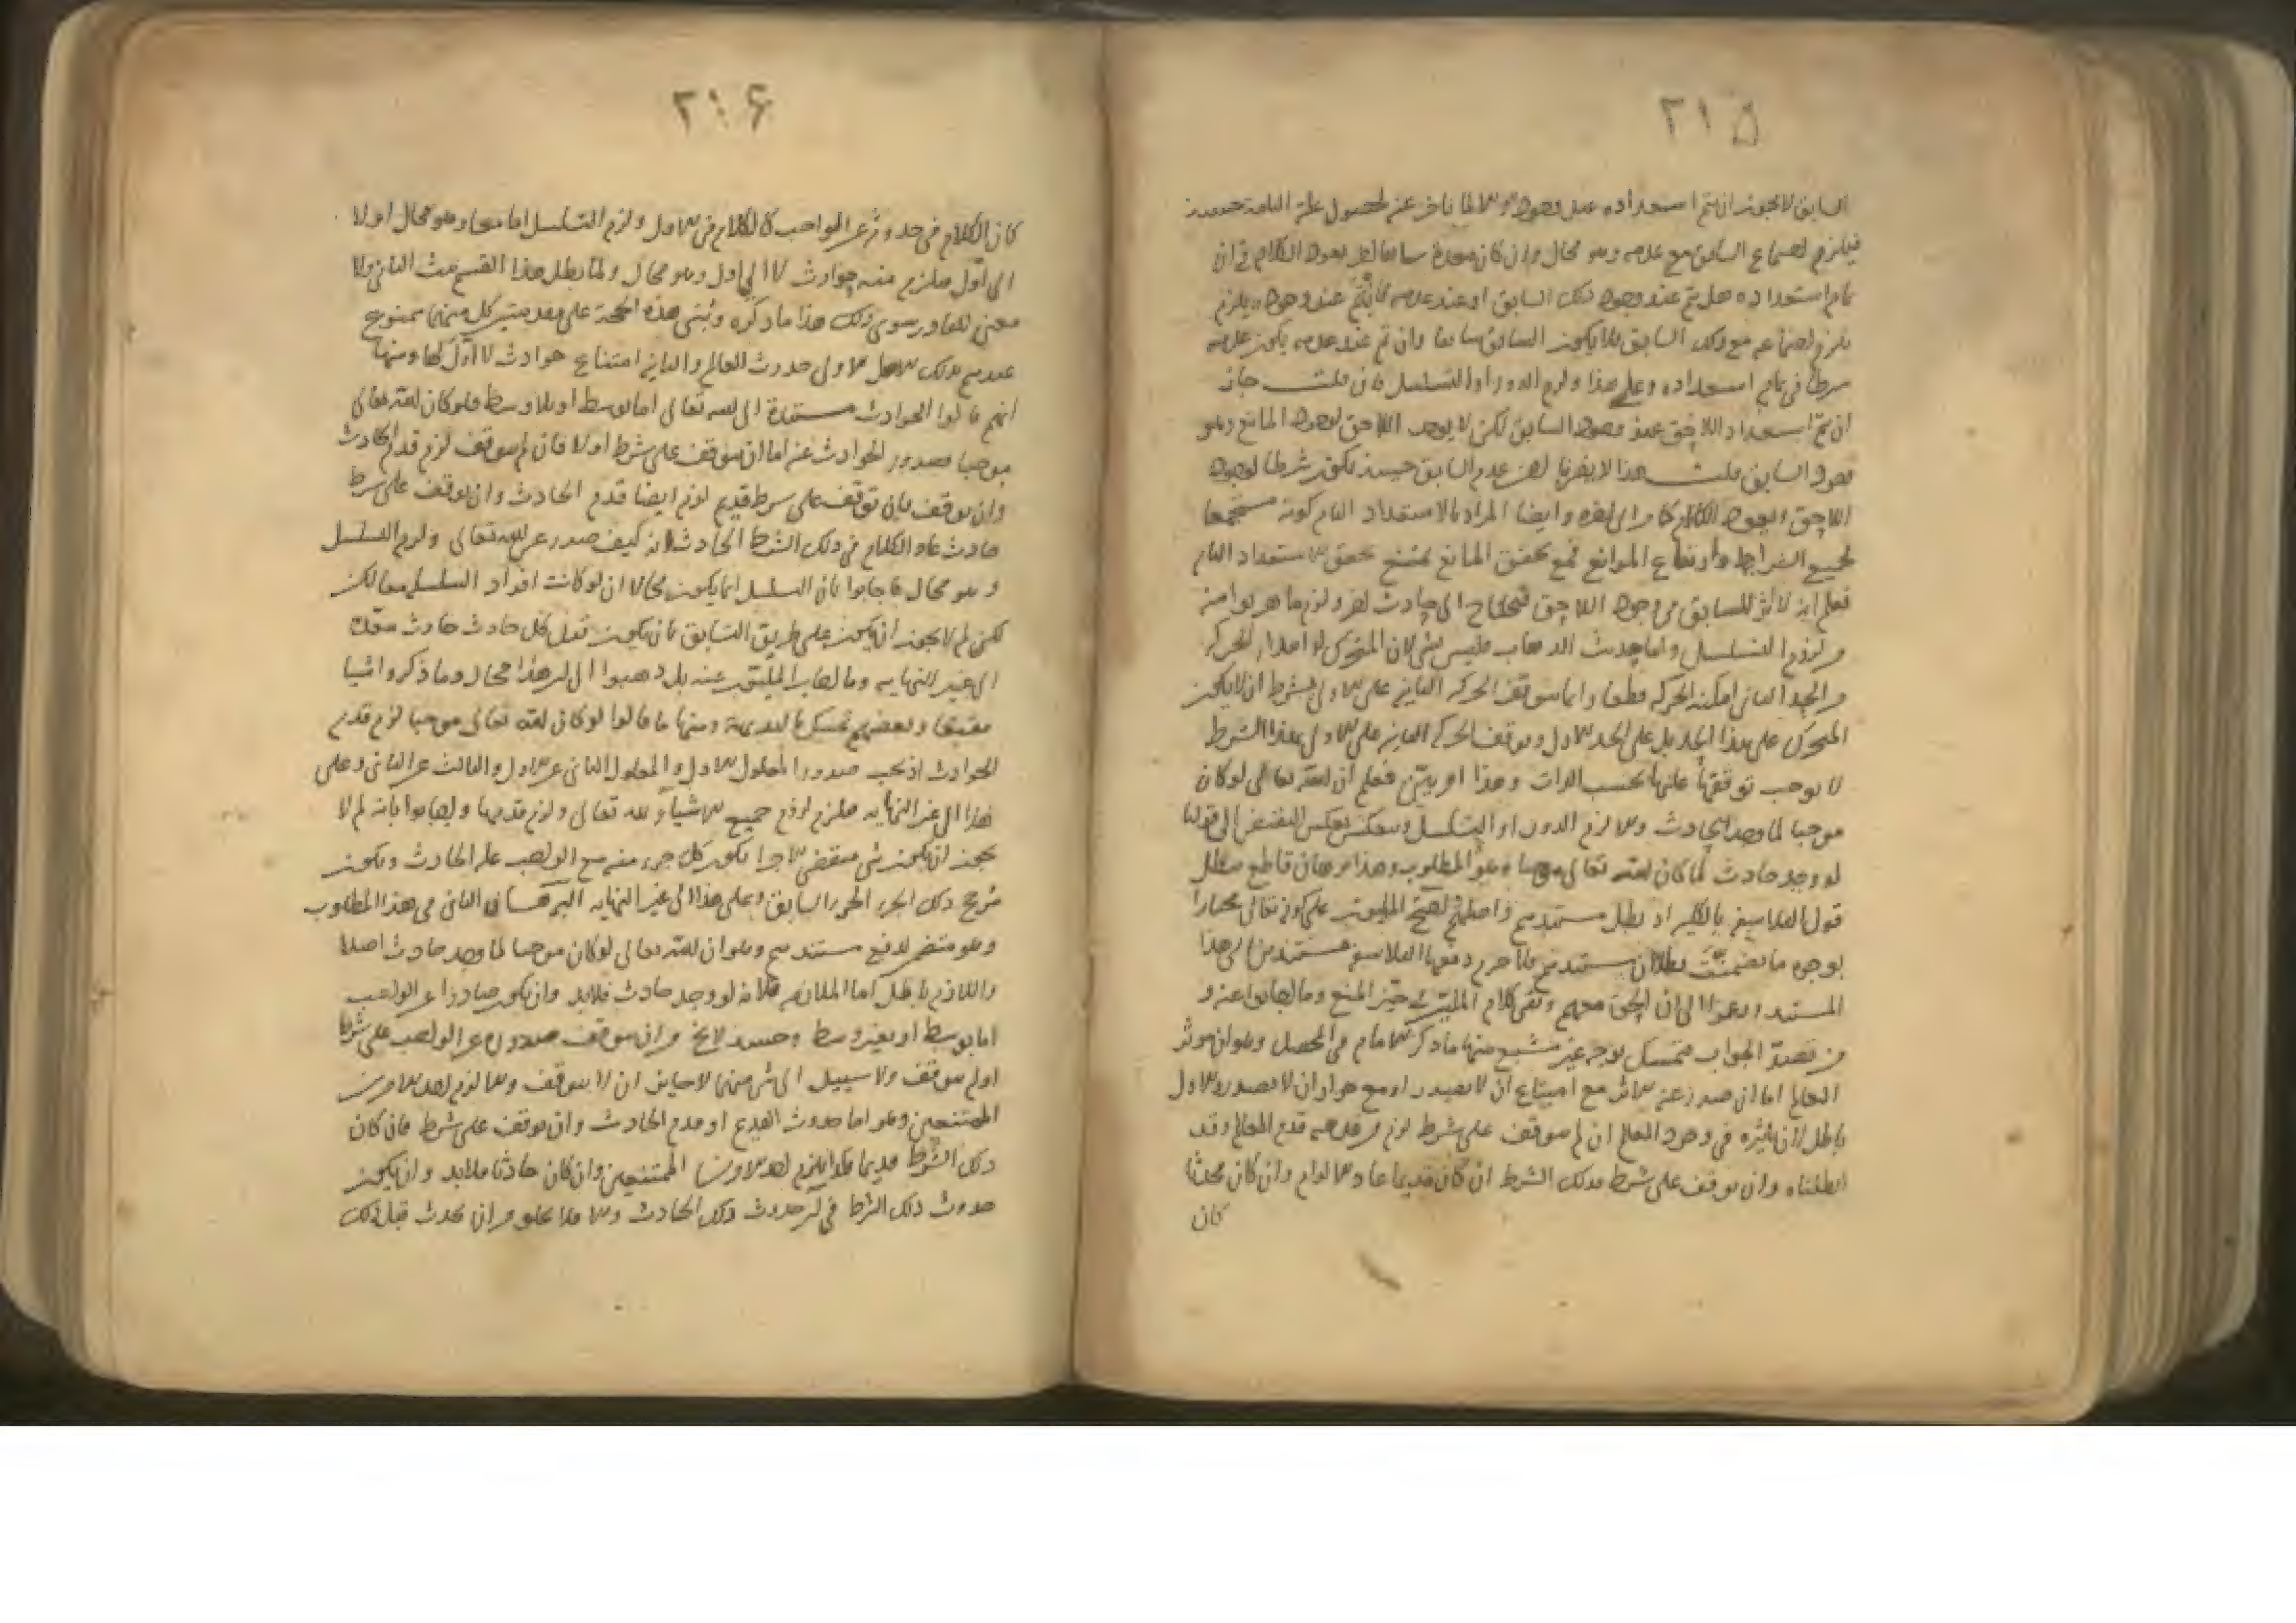 ٢١٥
السابق لا يجوز ان يتم استعداده عند وجود والا لما تاخر عنه لحصول علته التامة حينئذ
فيلزم اجتماع السابق مع عدمه وهو محال وان كان معدا سابقا اخر يعود الكلام في ان
تمام استعداده هل يتم عند وجود ذلك السابق او عند عدمه فان تم عند وجوده يلزم
يلزم اجتماعه مع ذلك السابق فلا يكون السابق سابقا وان تم عند عدمه يكون عدمه
شرطا في تمام استعداده وعلى هذا ولزم الدور او التسلسل فان قلت جاز
ان تم استعداد اللاحق عند وجود السابق لكن لا يوجد اللاحق لوجود المانع وهو
وجود السابق قلت هذا لا يضرنا لان عدم السابق حينئذ يكون شرطا لوجود
اللاحق ويعود الكلام كما مر الى اخره وايضا المراد بالاستعداد التام كونه مستجمعا
لجميع الشرايط وارتفاع الموانع فمع تحقق المانع يمتنع تحقق الاستعداد التام
فعلم انه لا اثر للسابق في وجود اللاحق فيحتاج الى حادث اخر ولزم ما هربوا منه
من لزوم التسلسل واما حديث الذهاب فليس بشي لان المتحرك لو ابتدا الحركة
من الحد الثاني امكنه الحركة قطعا وانما يتوقف الحركة الثانية على الاولى بشرط ان لا يكون
المتحرك على هذا الحد بل على الحد الاول وتوقف الحركة الثانية على الاولى بهذا الشرط
لا يوجب توقفها عليها بحسب الذات وهذا امر بين فعلم ان الله تعالى لو كان
موجبا لما وجد الحادث والا لزم الدور او التسلسل وينعكس بعكس النقيض الى قولنا
لو وجد حادث لما كان الله تعالى موجبا وهو المطلوب وهذا برهان قاطع يبطل
قول الفلاسفة بالكلية اذ بطل مستندهم واصلهم احتج المليون على كونه تعالى مختارا
بوجوه ما تضمنت بطلان مستندهم فلا جرم دفعها الفلاسفة مستندين الى هذا
المستند ودعوا الى ان الحق معهم وبقي كلام المليين في حيز المنع وما اجابوا عنه و
من قصد الجواب فتمسك بوجه غير مشبع منها ما ذكر الامام في المحصل وهو ان موثر
العالم اما ان صدر عنه الاثر مع امتناع ان لا يصدر او مع جواز ان لا يصدر والاول
باطل لان تاثيره في وجود العالم ان لم يتوقف على شرط لزم من قدمه قدم العالم وقد
ابطلناه وان توقف على شرط فذلك الشرط ان كان قديما عاد الالزام وان كان محدثا
كان
٢١۶
كان الكلام في حدوثه عن الواجب كالكلام في الاول ولزم التسلسل اما معا وهو محال او لا
الى اول فيلزم منه حوادث لا الى اول وهو محال ولما بطل هذا القسم ثبت الثاني ولا
معنى للقادر سوى ذلك هذا ما ذكره وتبنى هذه الحجة على مقدمتين كل منهما ممنوع
عندهم بذلك الاصل الاولى حدوث العالم والثانية امتناع حوادث لا اول لها ومنها
انهم قالوا الحوادث مستندة الى الله تعالى اما بوسط او بلا وسط فلو كان الله تعالى
موجبا فصدور الحوادث عنه اما ان يتوقف على شرط او لا فان لم يتوقف لزم قدم الحادث
وان يتوقف فان توقف على شرط قديم لزم ايضا قدم الحادث وان توقف على شرط
حادث عاد الكلام في ذلك الشرط الحادث انه كيف صدر عن الله تعالى ولزم التسلسل
وهو محال فاجابوا بان التسلسل انما يكون محالا ان لو كانت افراد التسلسل معا لكن
لكن لم لا يجوز ان يكون على طريق التسابق بان يكون قبل كل حادث حادث معد له
الى غير النهاية وما اجاب المليون عنه بل ذهبوا الى ان هذا محال وما ذكروا شيا
مقنعا وبعضهم تمسك بالبديهة ومنها ما قالوا لو كان الله تعالى موجبا لزم قدم
الحوادث اذ يجب صدور المعلول الاول والمعلول الثاني عن الاول والثالث عن الثاني وعلى
هذا الى غير النهاية فيلزم لزوم جميع الاشياء لله تعالى ولزم قدمها واجابوا بانه لم لا
يجوز ان يكون شي منقضي الاجزا يكون كل جزء منه مع الواجب علة الحادث ويكون
مرجح ذلك الجزء الجزء السابق وعلى هذا الى غير النهاية البرهان الثاني في هذا المطلوب
وهو متضمن لدفع مستندهم وهو ان الله تعالى لو كان موجبا لما وجد حادث اصلا
واللازم باطل اما الملازمة فلانه لو وجد حادث فلابد وان يكون صادرا عن الواجب
اما بوسط او بغير وسط وحينئذ لا يخ من ان يتوقف صدوره عن الواجب على شرط
او لم يتوقف ولا سبيل الى شي منهما لا جايز ان لا يتوقف والا لزم احد الامرين
الممتنعين وهو اما حدوث القديم او قدم الحادث وان توقف على شرط فان كان
ذلك الشرط قديما فكذا يلزم احد الامرين الممتنعين وان كان حادثا فلابد وان يكون
حدوث ذلك الشرط في ان حدوث ذلك الحادث والا فلا يخلو من ان يحدث قبل ذلك